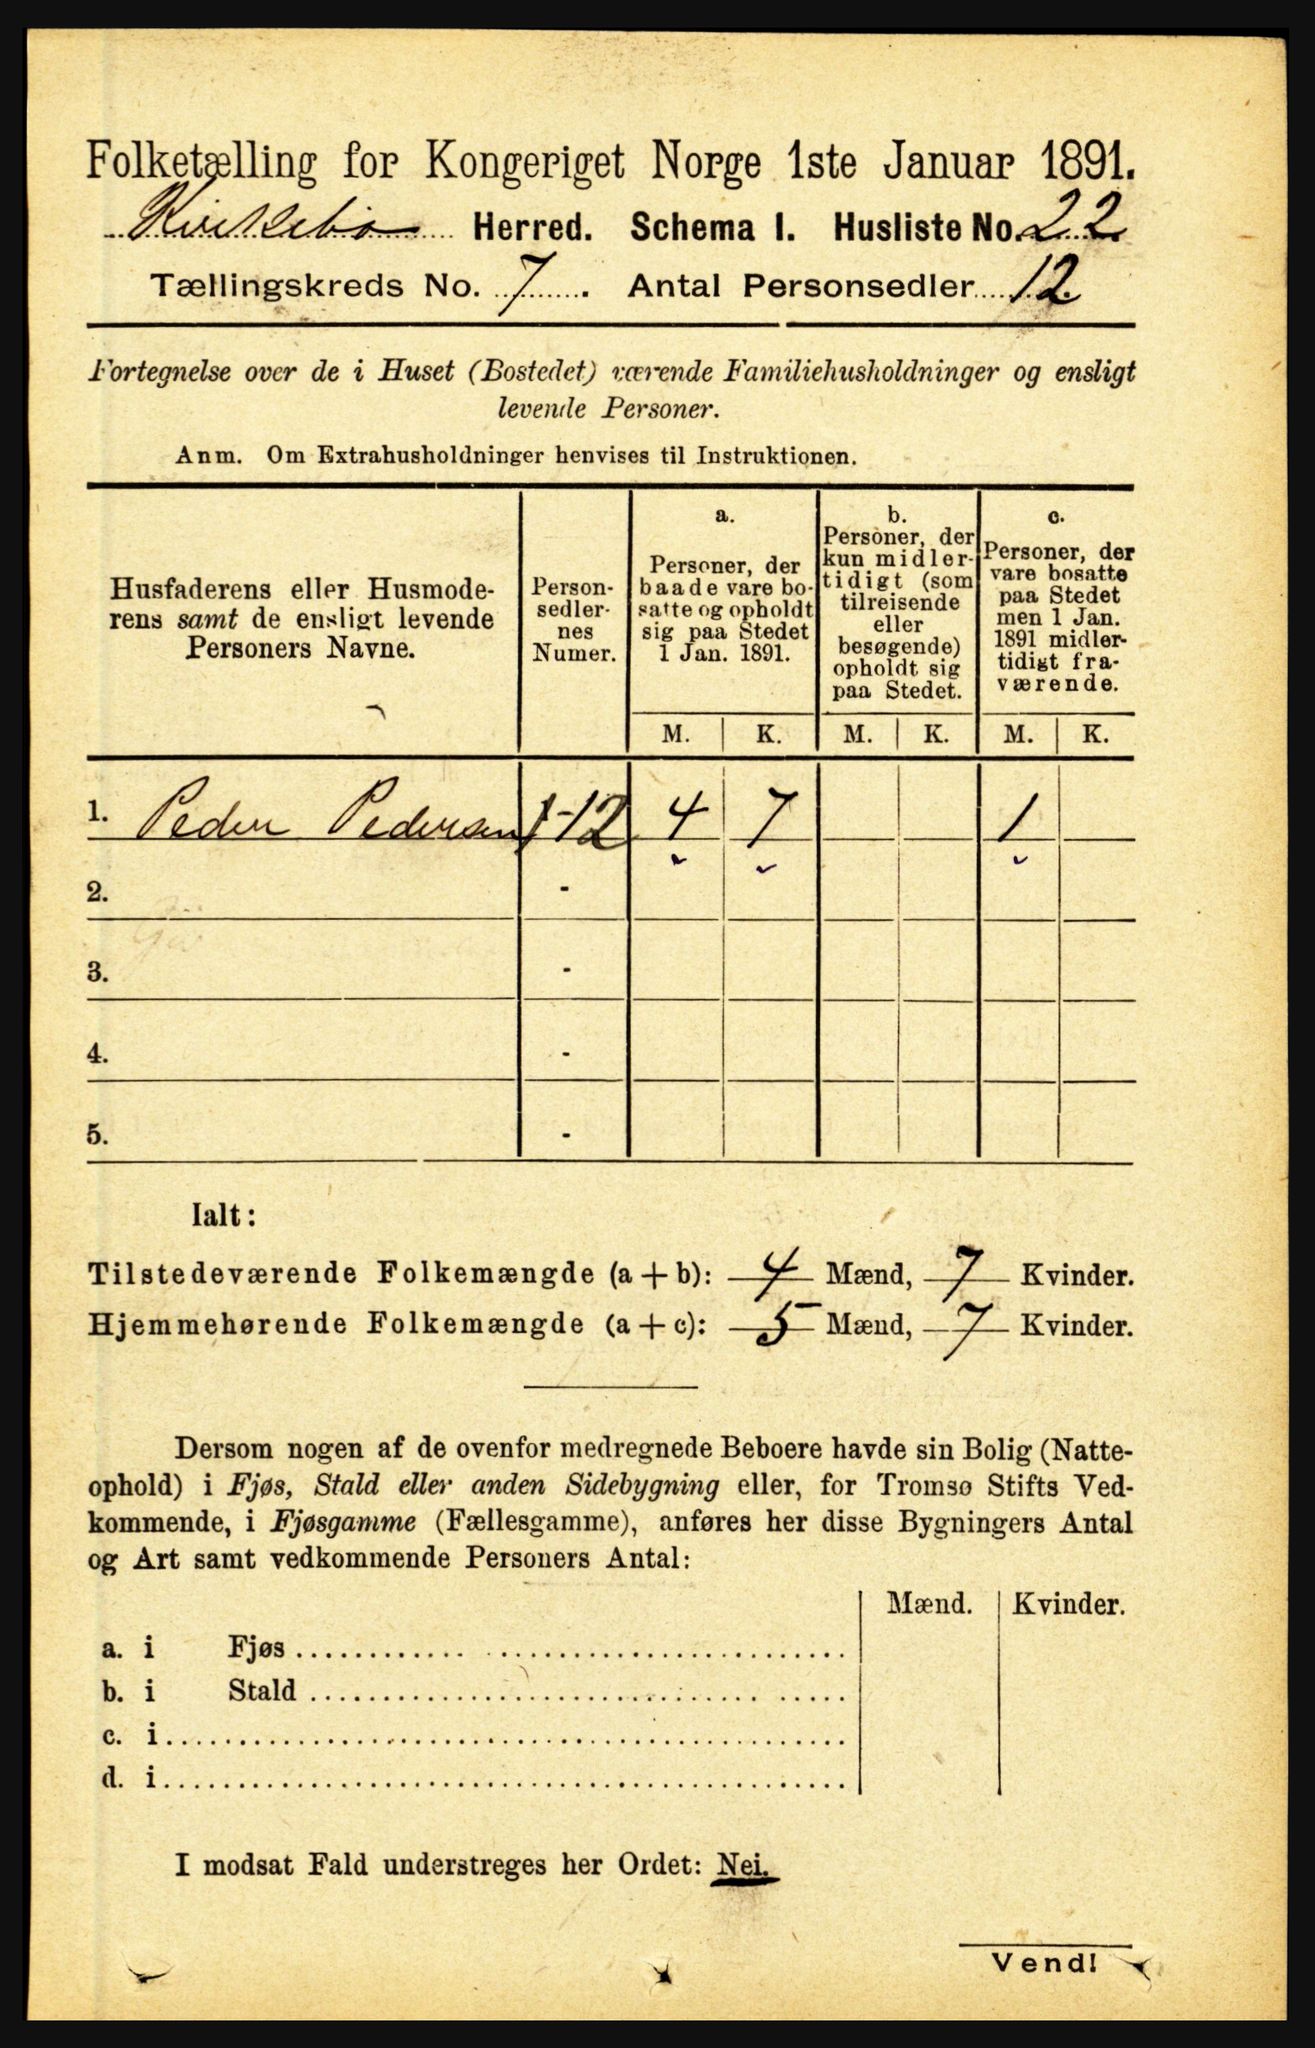 Folketælling for Kongeriget Norge 1ste Januar 1891.
Kirkebø Herred. Schema I. Husliste No. 22
Tællingskreds No. 7. Antal Personsedler 12.
Fortegnelse over de i Huset (Bostedet) værende Familiehusholdninger og ensligt
levende Personer.
Anm. Om Extrahusholdninger henvises til Instruktionen.
Husfaderens eller Husmode-
rens samt de ensligt levende
Personers Navne.
Person-
sedler-
nes
Numer.
a.
Personer, der
baade vare bo-
satte og opholdt
sig paa Stedet
1 Jan. 1891.
b.
Personer, der
kun midler-
tidigt (som
tilreisende
eller
besøgende)
opholdt sig
paa Stedet.
c.
Personer, der
vare bosatte
paa Stedet
men 1 Jan.
1891 midler-
tidigt fra-
værende.
M. K. M. K. M. K.
1. Peder Pedersen 1-12 4 7 1
2. -
3. -
4. -
5. -
Ialt:
Tilstedeværende Folkemængde (a + b): 4 Mænd, 7 Kvinder.
Hjemmehørende Folkemængde (a + c): 5 Mænd, 7 Kvinder.
Dersom nogen af de ovenfor medregnede Beboere havde sin Bolig (Natte-
ophold) i Fjøs, Stald eller anden Sidebygning eller, for Tromsø Stifts Ved-
kommende, i Fjøsgamme (Fællesgamme), anføres her disse Bygningers Antal
og Art samt vedkommende Personers Antal:
Mænd. Kvinder.
a. i Fjøs
b. i Stald
c. i
d. i
I modsat Fald understreges her Ordet: Nei.
Vend!